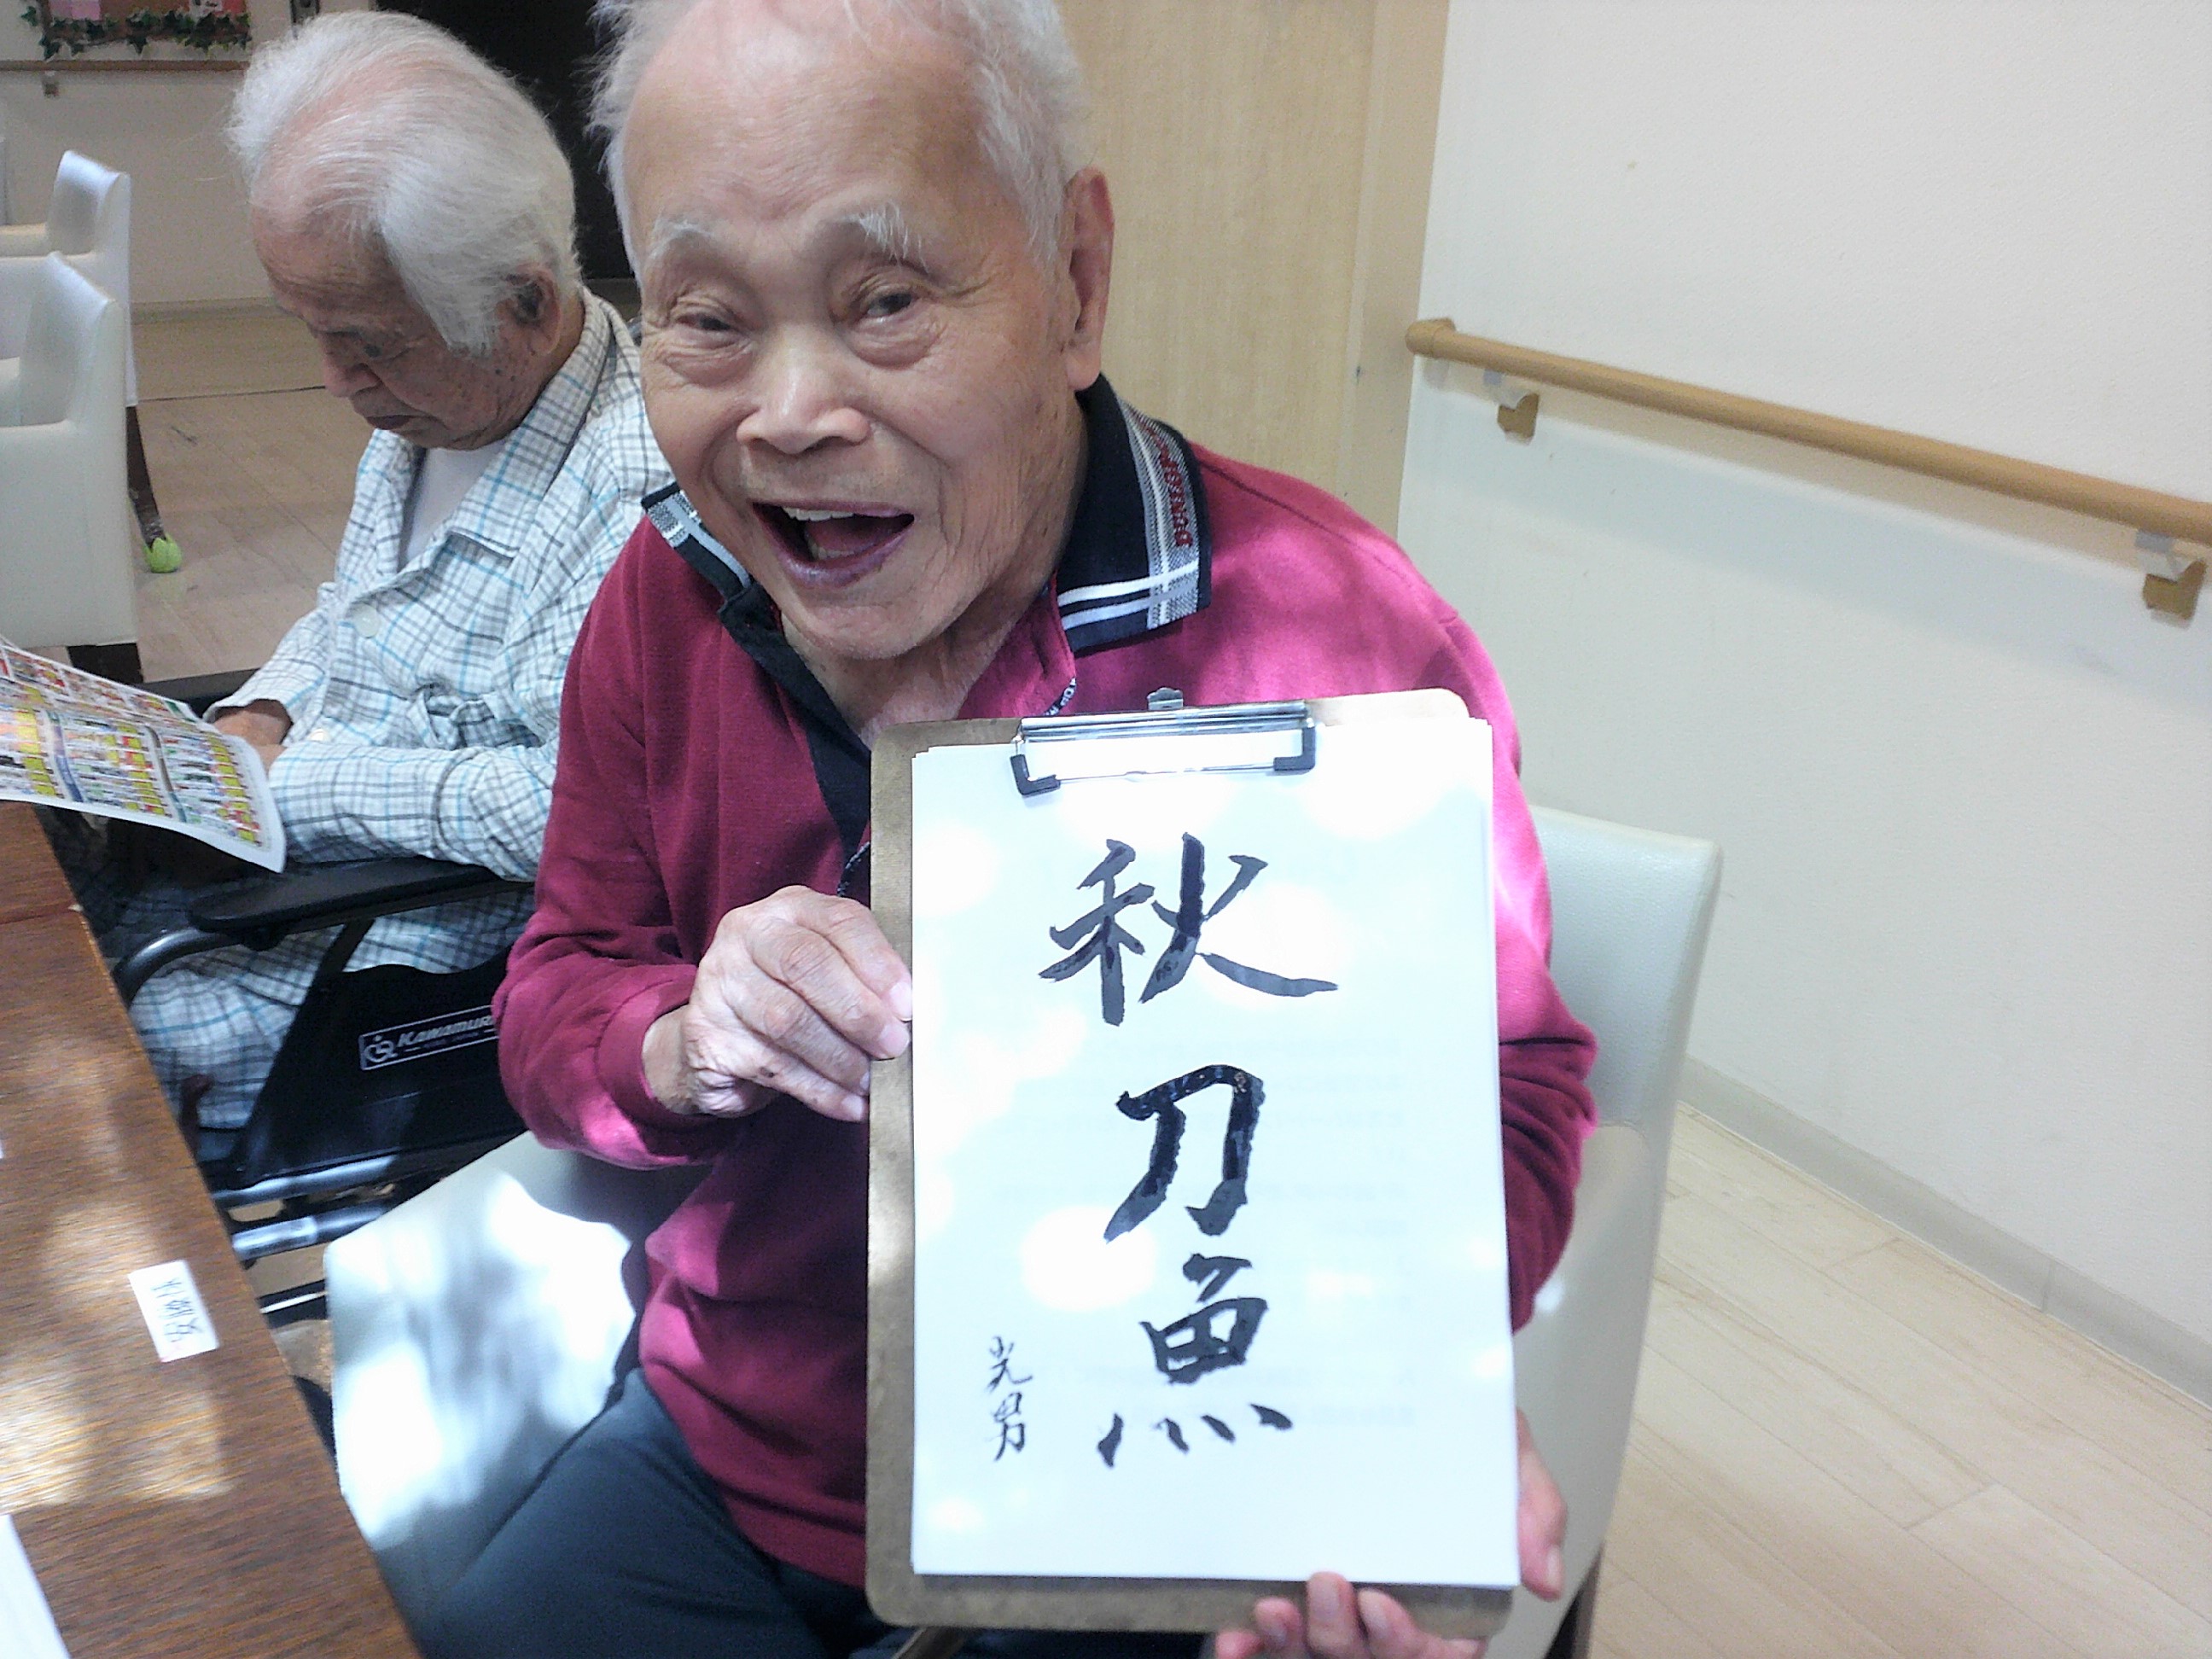 秋刀魚
光男
KAWAMURA